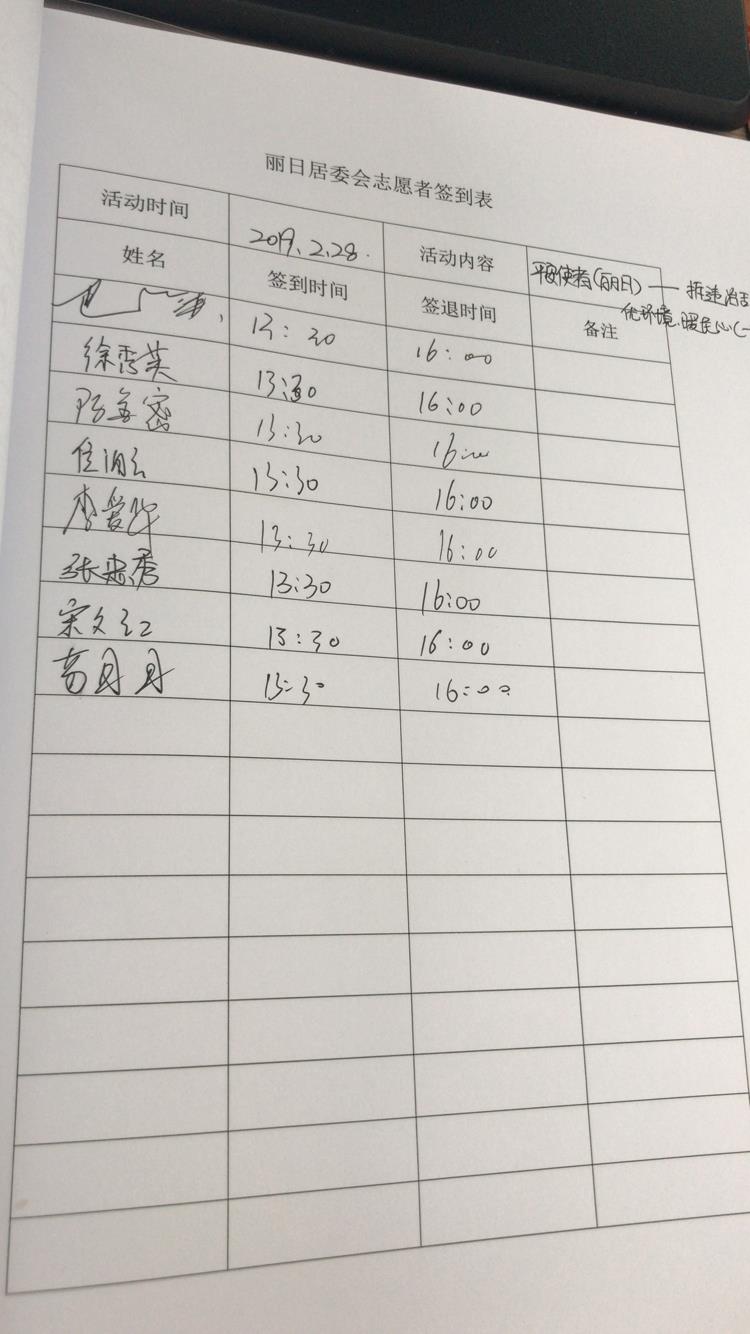 丽日居委会志愿者签到表
活动时间 2019.2.28. 活动内容 平安使者(丽日)—— 拆违治
优环境.暖民心(一
姓名 签到时间 签退时间 备注
13:30 16:00
徐秀英 13:30 16:00
13:30 16:00
13:30 16:00
李爱华 13:30 16:00
张忠秀 13:30 16:00
宋文红 13:30 16:00
高丹丹 13:30 16:00